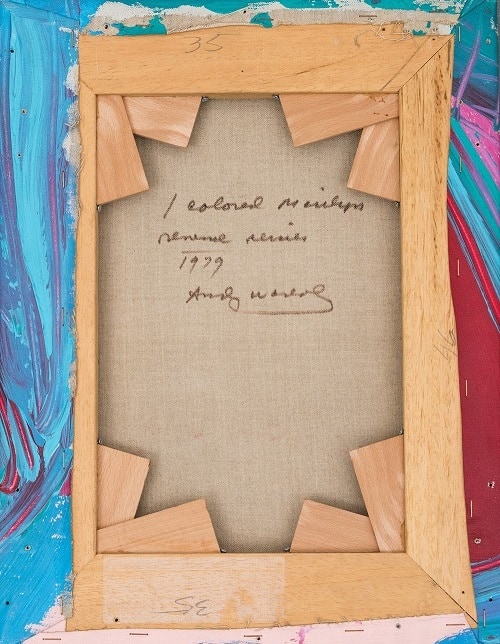 35
1 colored Marilyn
reverse series
1979
Andy Warhol
35